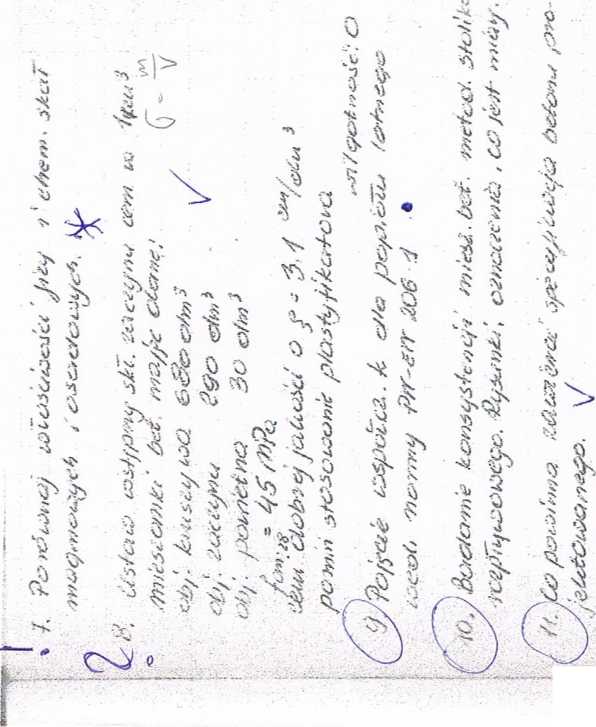 7. Porównaj właściwości fizy. i chem. skał
magmowych i osadowych.
8. Ustaw wstępny skł. zaczynu cem w 1m³
mieszanki bet. mając dane:
obj. kruszywa 680 dm³
obj. zaczynu 290 dm³
obj. powietrza 30 dm³
fcm,28 = 45 MPa
cem. dobrej jakości o ρ = 3,1 /dm³
pomiń stosowanie plastyfikatora
wilgotność: 0
G = m/V
9. Pojęcie współcz. k dla popiołu lotnego
wedł. normy PN-EN 206-1
10. Badanie konsystencji miesz. bet. metod. stolika
rozpływowego. Rysunki, oznaczenia, co jest miarą.
11. Co powinna zawierać specyfikacja betonu pro-
jektowanego.